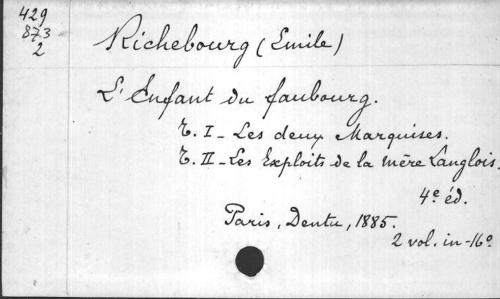 429
873
2
Richebourg (Emile)
L'Enfant du faubourg.
T. I - Les deux Marquises.
T. II - Les Exploits de la mère Langlois.
4e éd.
Paris, Dentu, 1885.
2 vol. in-16o